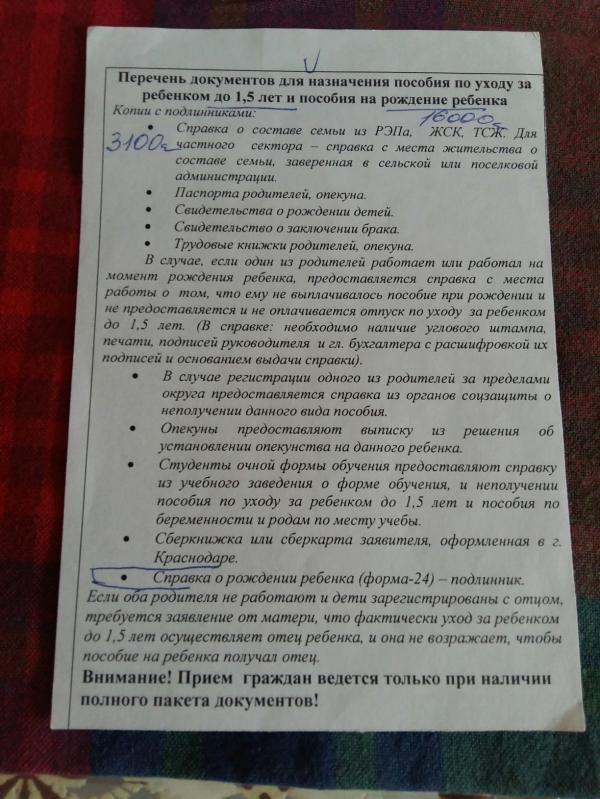 Перечень документов для назначения пособия по уходу за
ребенком до 1,5 лет и пособия на рождение ребенка
Копии с подлинниками:
16000
• Справка о составе семьи из РЭПа, ЖСК, ТСЖ. Для
3100
частного сектора – справка с места жительства о
составе семьи, заверенная в сельской или поселковой
администрации.
• Паспорта родителей, опекуна.
• Свидетельства о рождении детей.
• Свидетельство о заключении брака.
• Трудовые книжки родителей, опекуна.
В случае, если один из родителей работает или работал на
момент рождения ребенка, предоставляется справка с места
работы о том, что ему не выплачивалось пособие при рождении и
не предоставляется и не оплачивается отпуск по уходу за ребенком
до 1,5 лет. (В справке: необходимо наличие углового штампа,
печати, подписей руководителя и гл. бухгалтера с расшифровкой их
подписей и основанием выдачи справки).
• В случае регистрации одного из родителей за пределами
округа предоставляется справка из органов соцзащиты о
неполучении данного вида пособия.
• Опекуны предоставляют выписку из решения об
установлении опекунства на данного ребенка.
• Студенты очной формы обучения предоставляют справку
из учебного заведения о форме обучения, и неполучении
пособия по уходу за ребенком до 1,5 лет и пособия по
беременности и родам по месту учебы.
• Сберкнижка или сберкарта заявителя, оформленная в г.
Краснодаре.
• Справка о рождении ребенка (форма-24) – подлинник.
Если оба родителя не работают и дети зарегистрированы с отцом,
требуется заявление от матери, что фактически уход за ребенком
до 1,5 лет осуществляет отец ребенка, и она не возражает, чтобы
пособие на ребенка получал отец.
Внимание! Прием граждан ведется только при наличии
полного пакета документов!